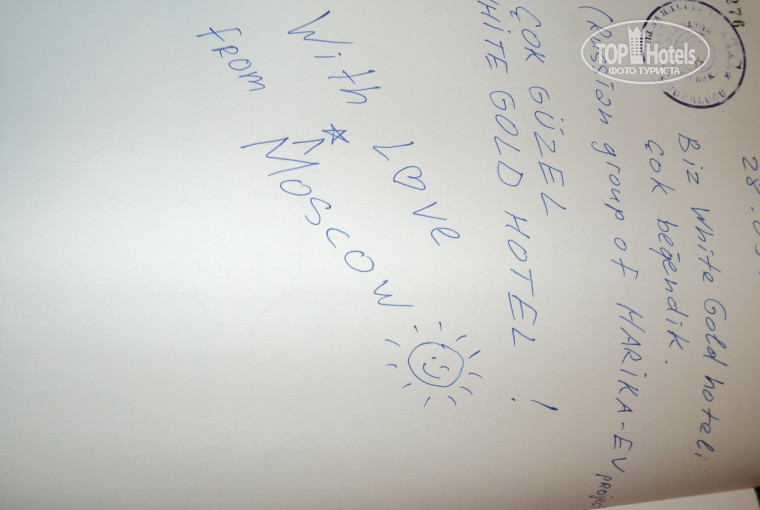 276
28.03.
Biz White Gold hoteli
çok beğendik.
(Russian group of HARİKA-EV project
ÇOK GÜZEL
WHITE GOLD HOTEL !
With Love
from Moscow
TOP Hotels
ФОТО ТУРИСТА